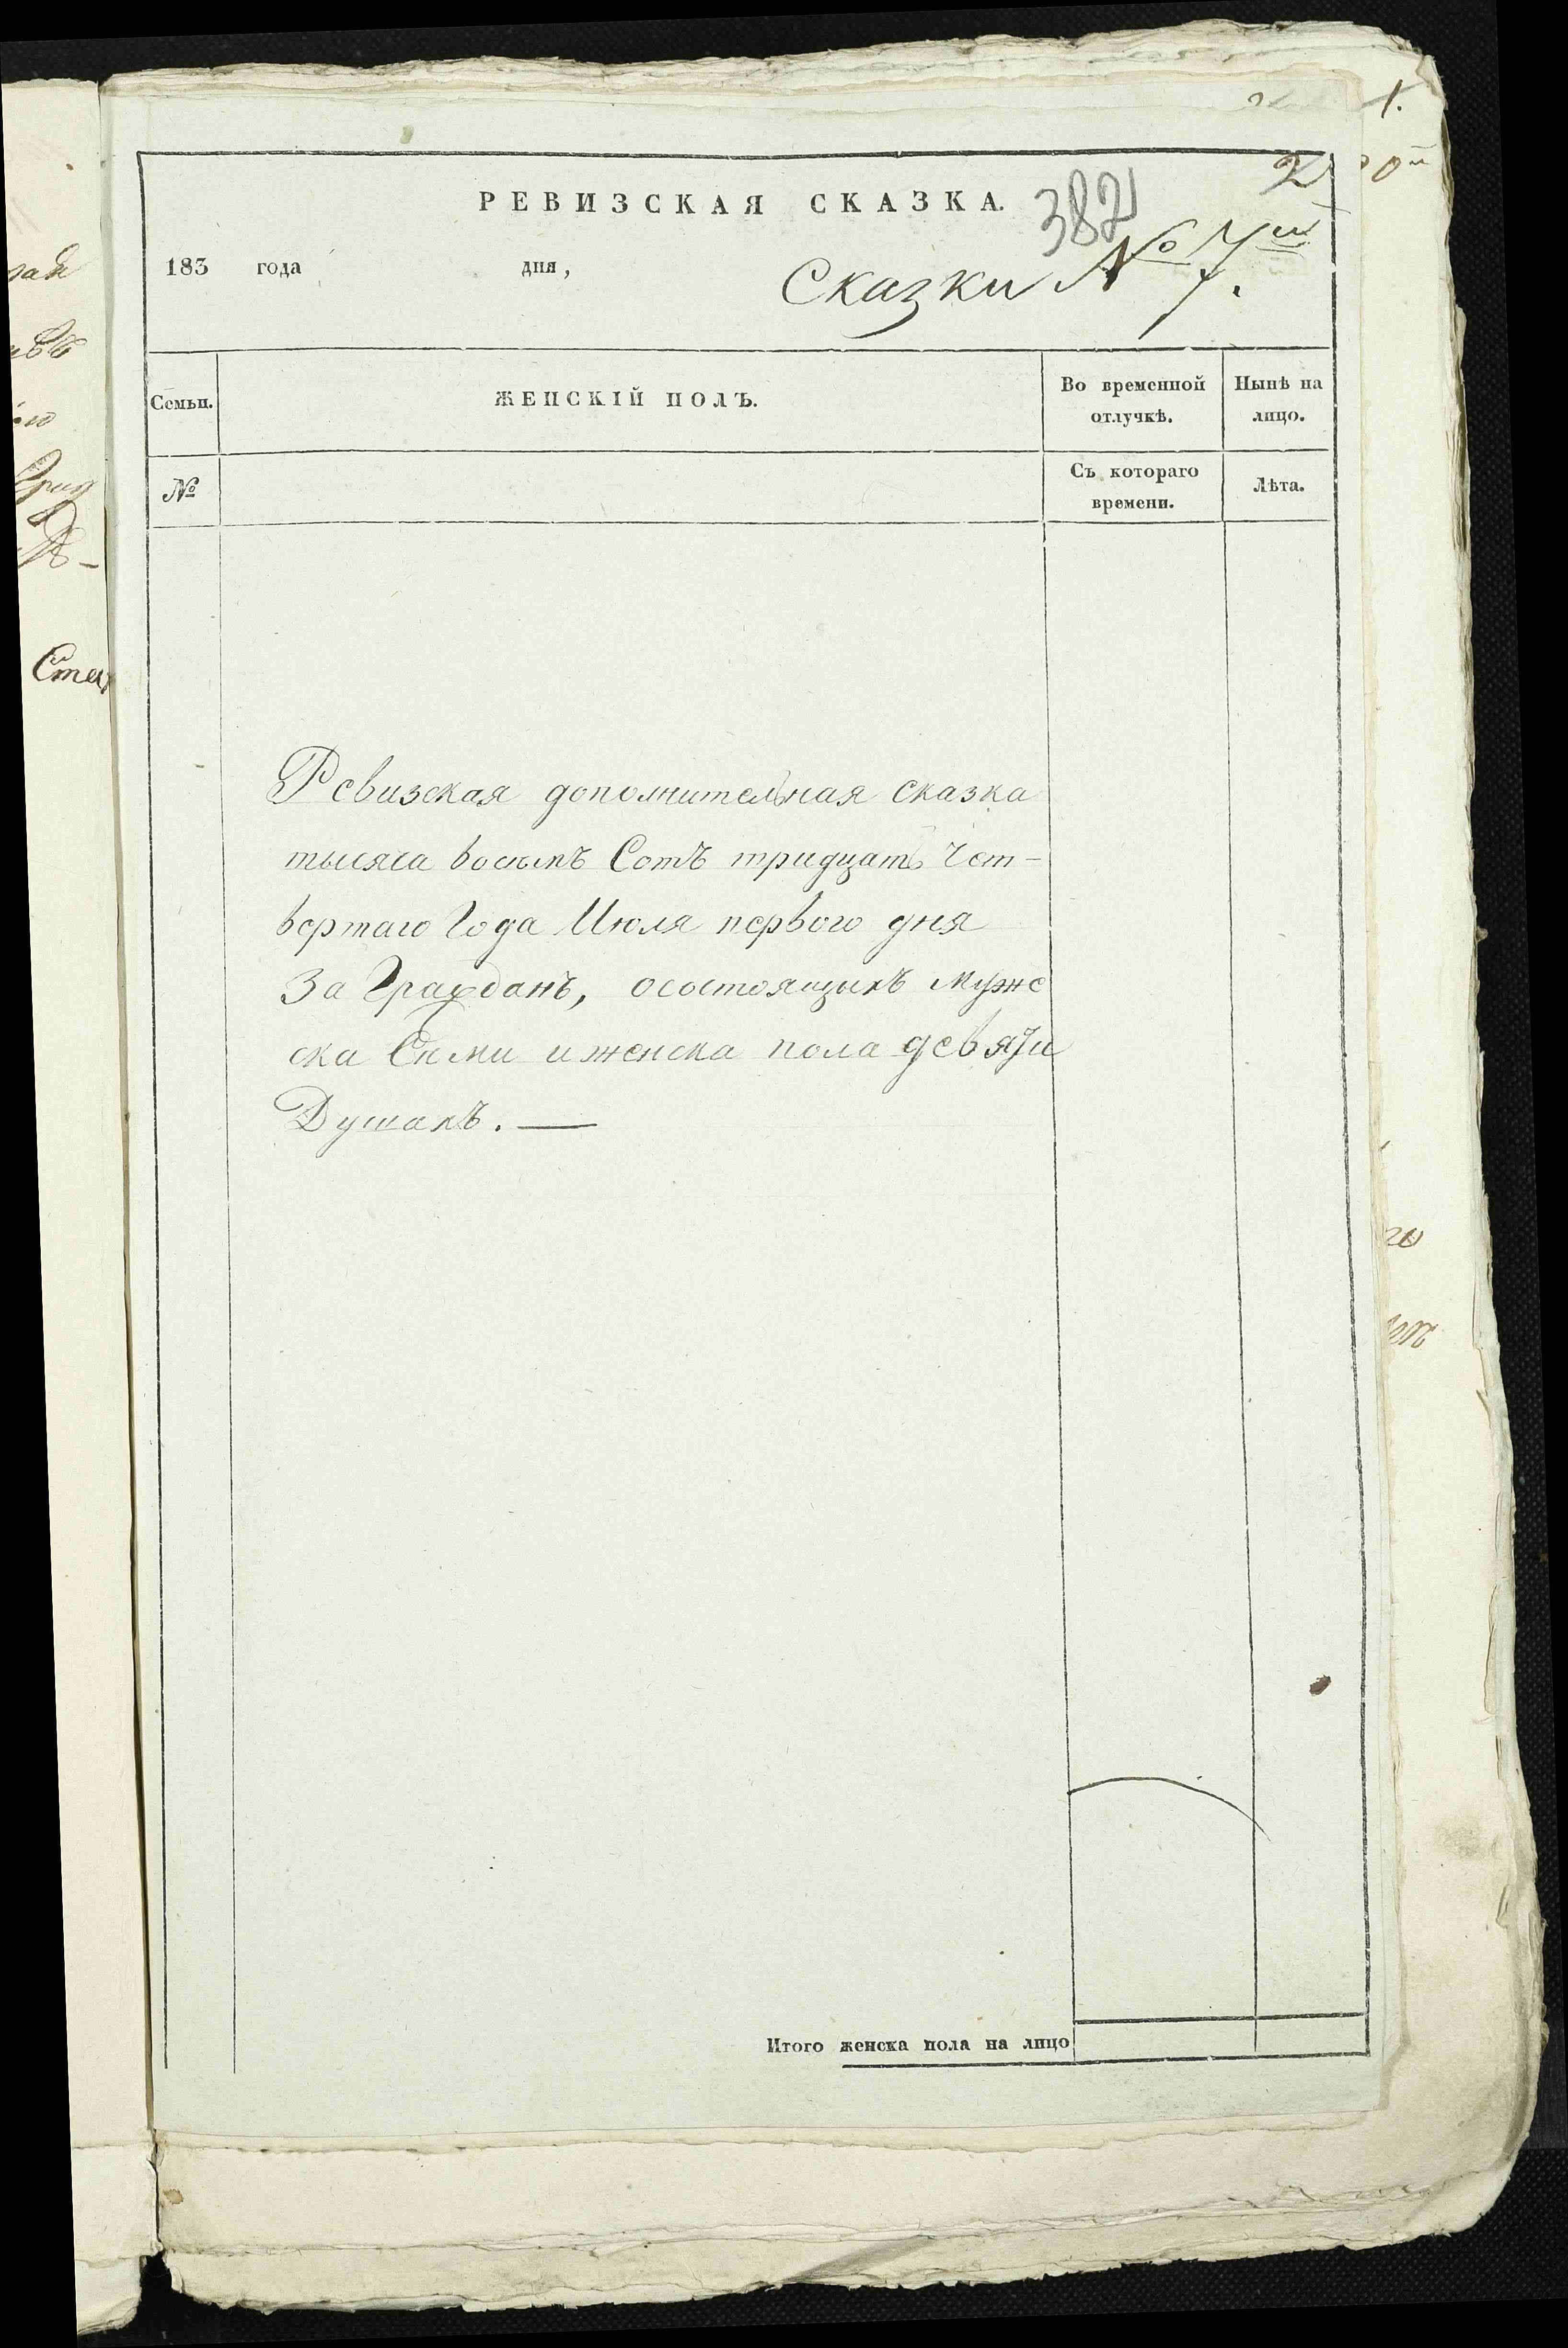 1.
2
РЕВИЗСКАЯ СКАЗКА.
382
183 года дня,
Сказки № 7.
Семьи.
ЖЕНСКІЙ ПОЛЪ.
Во временной отлучкѣ.
Нынѣ на лицо.
№
Съ котораго времени.
Лѣта.
Ревизская дополнительная сказка
тысяча восемь Сотъ тридцать Чет-
вертаго Года Июля первого дня
За Граждань, осостоящихъ мужс
ска Семи и женска пола девяти
Душахъ. —
Итого женска пола на лицо
Степ